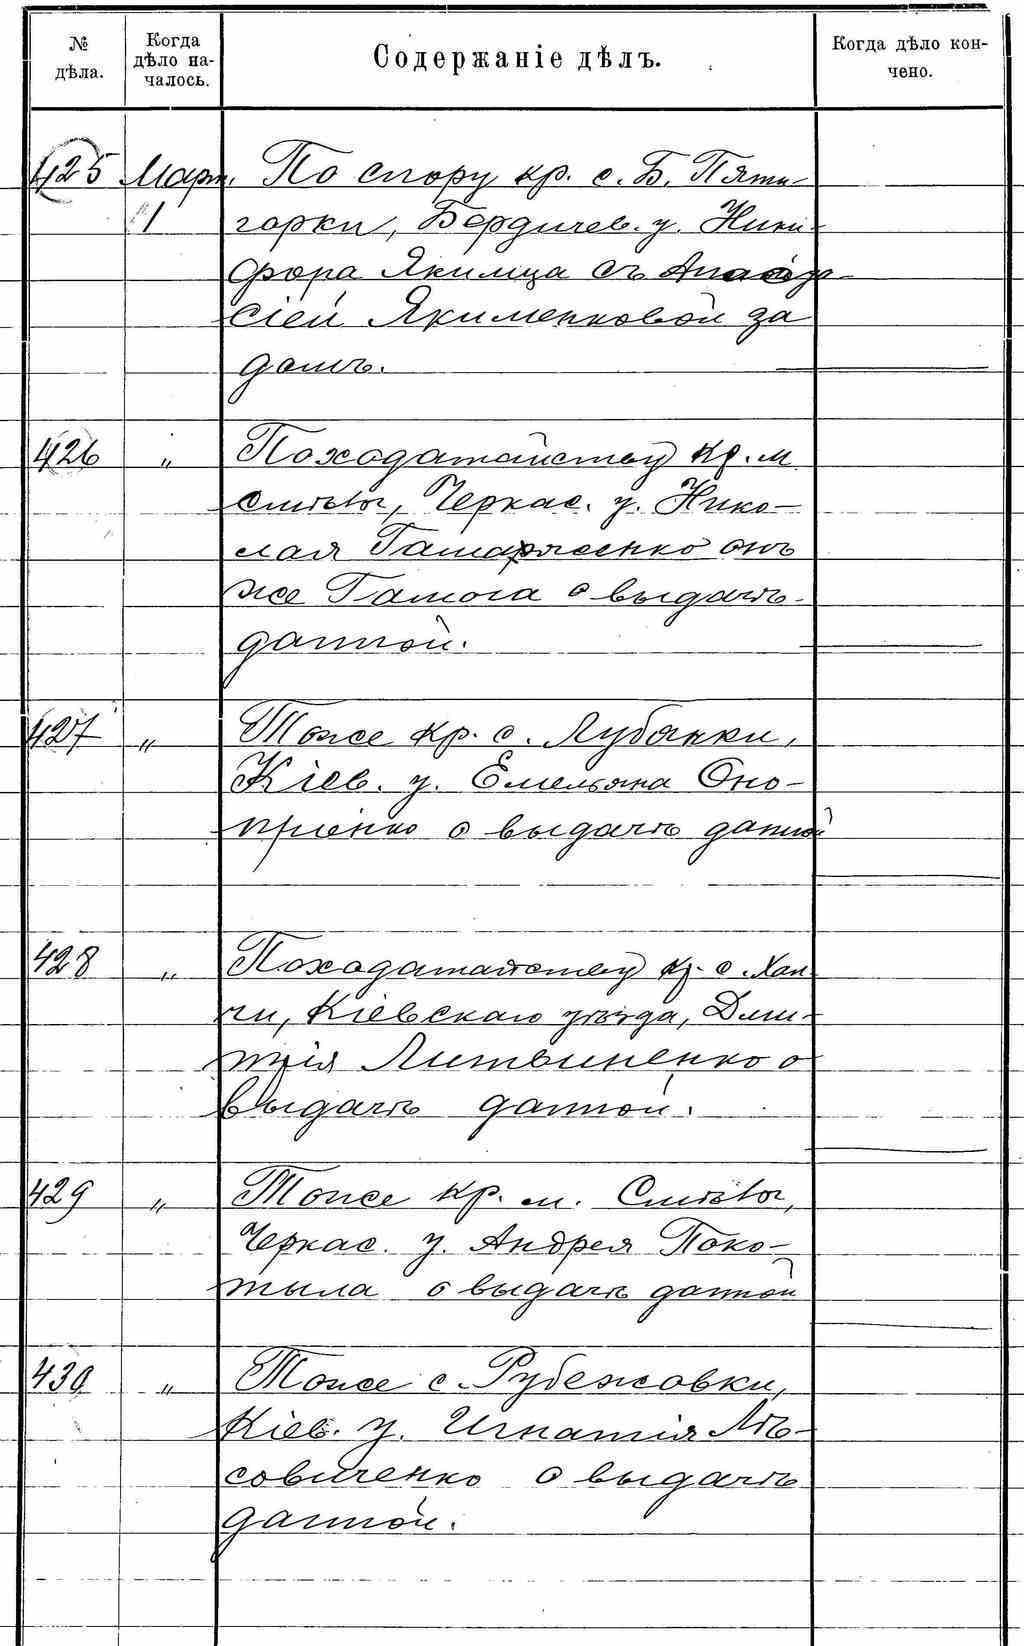 № дѣла.
Когда дѣло началось.
Содержаніе дѣлъ.
Когда дѣло кончено.
425 Март. По спору кр. с. Б. Пяти-
1 горки, Бердичев. у. Ники-
фора Якимца съ
сіей Якименковой за
домъ.
426 " По ходатайству кр. м
Смѣлы, Черкас. у. Нико-
лая онъ
же о выдачѣ
данной.
427 " Тоже кр. с. Лубянки,
Кіев. у. Емельяна Оно-
пріенко о выдачѣ данной
428 " По ходатайству кр. с. Хал-
чи, Кіевскаго уѣзда, Дми-
трія Литвиненко о
выдачѣ данной.
429 " Тоже кр. м. Смѣлы,
Черкас. у. Андрея Поко-
тыла о выдачѣ данной
430 " Тоже с. Рубежовки,
Кіев. у. Игнатія Лѣ-
совиченко о выдачѣ
данной.